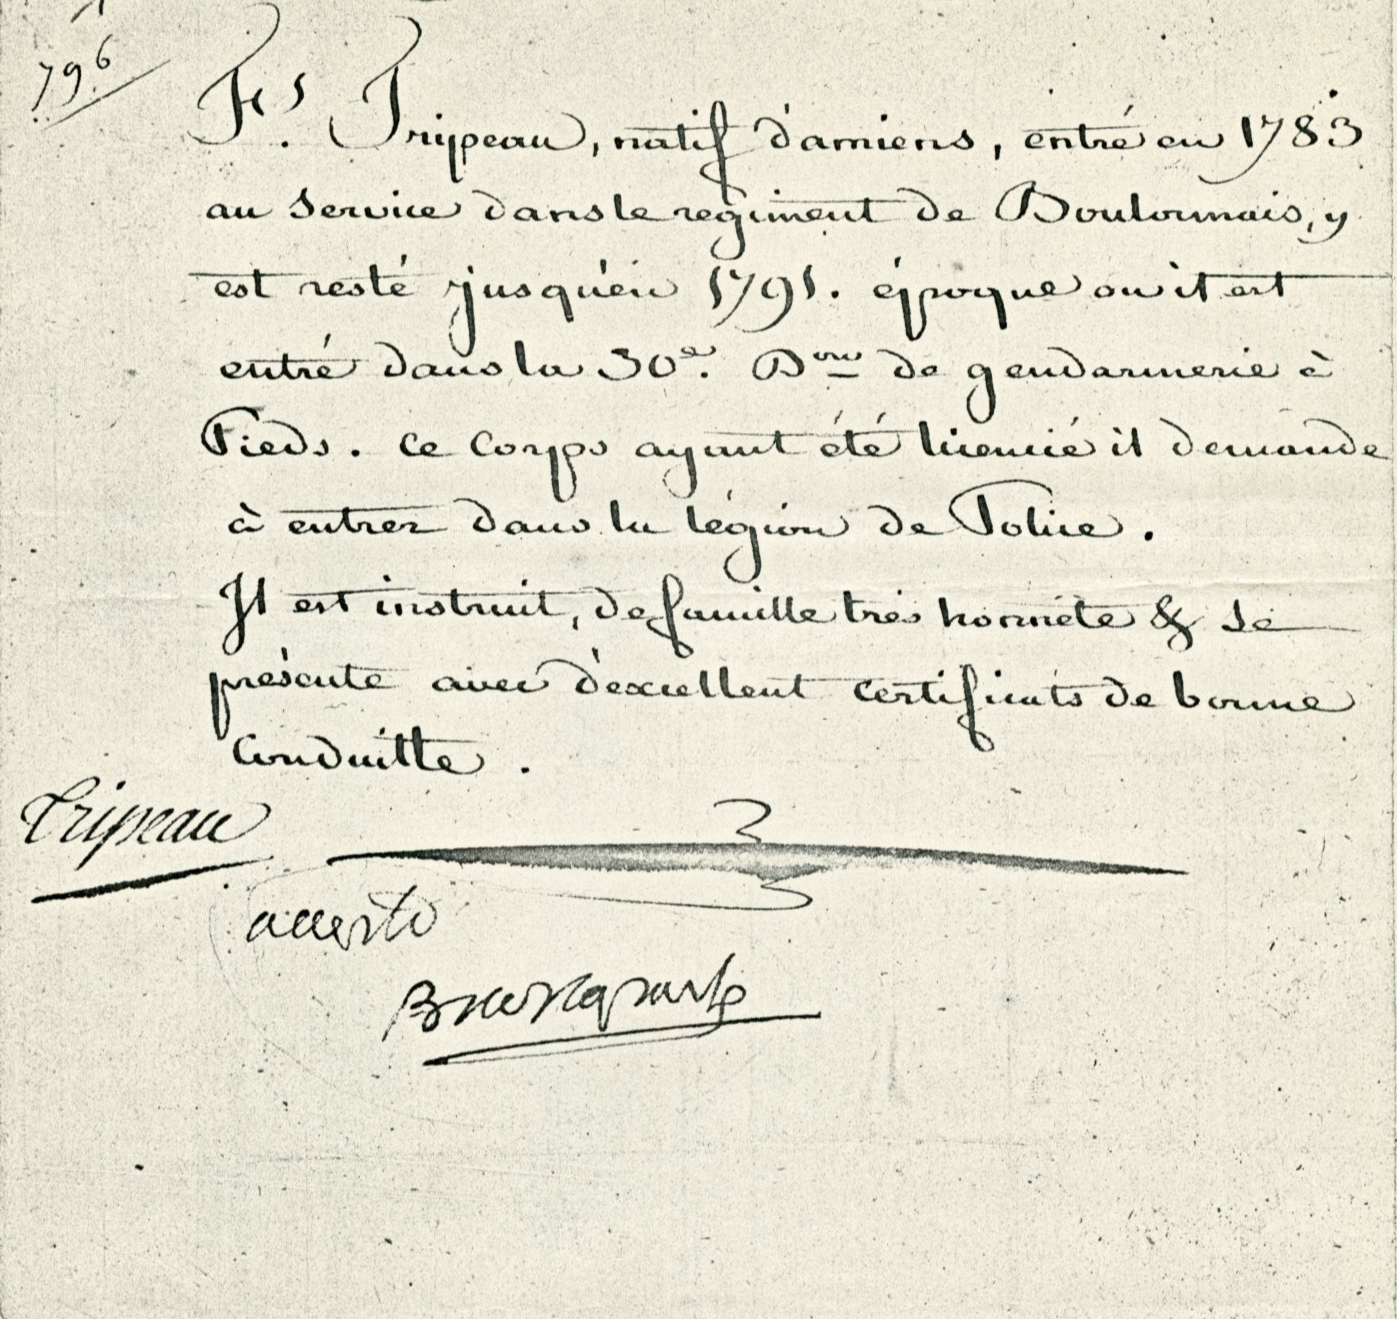 796
Fs. Tripeau, natif d'amiens, entré en 1783
au Service dans le regiment de Boulonnais, y
est resté jusqu'en 1791. époque ou il est
entré dans la 30e. Don de gendarmerie à
Pieds. Ce Corps ayant été licencié il demande
à entrer dans la légion de Police.
Il est instruit, de famille très honnête & Se
présente avec d'excellent certificats de bonne
Conduitte.
Tripeau